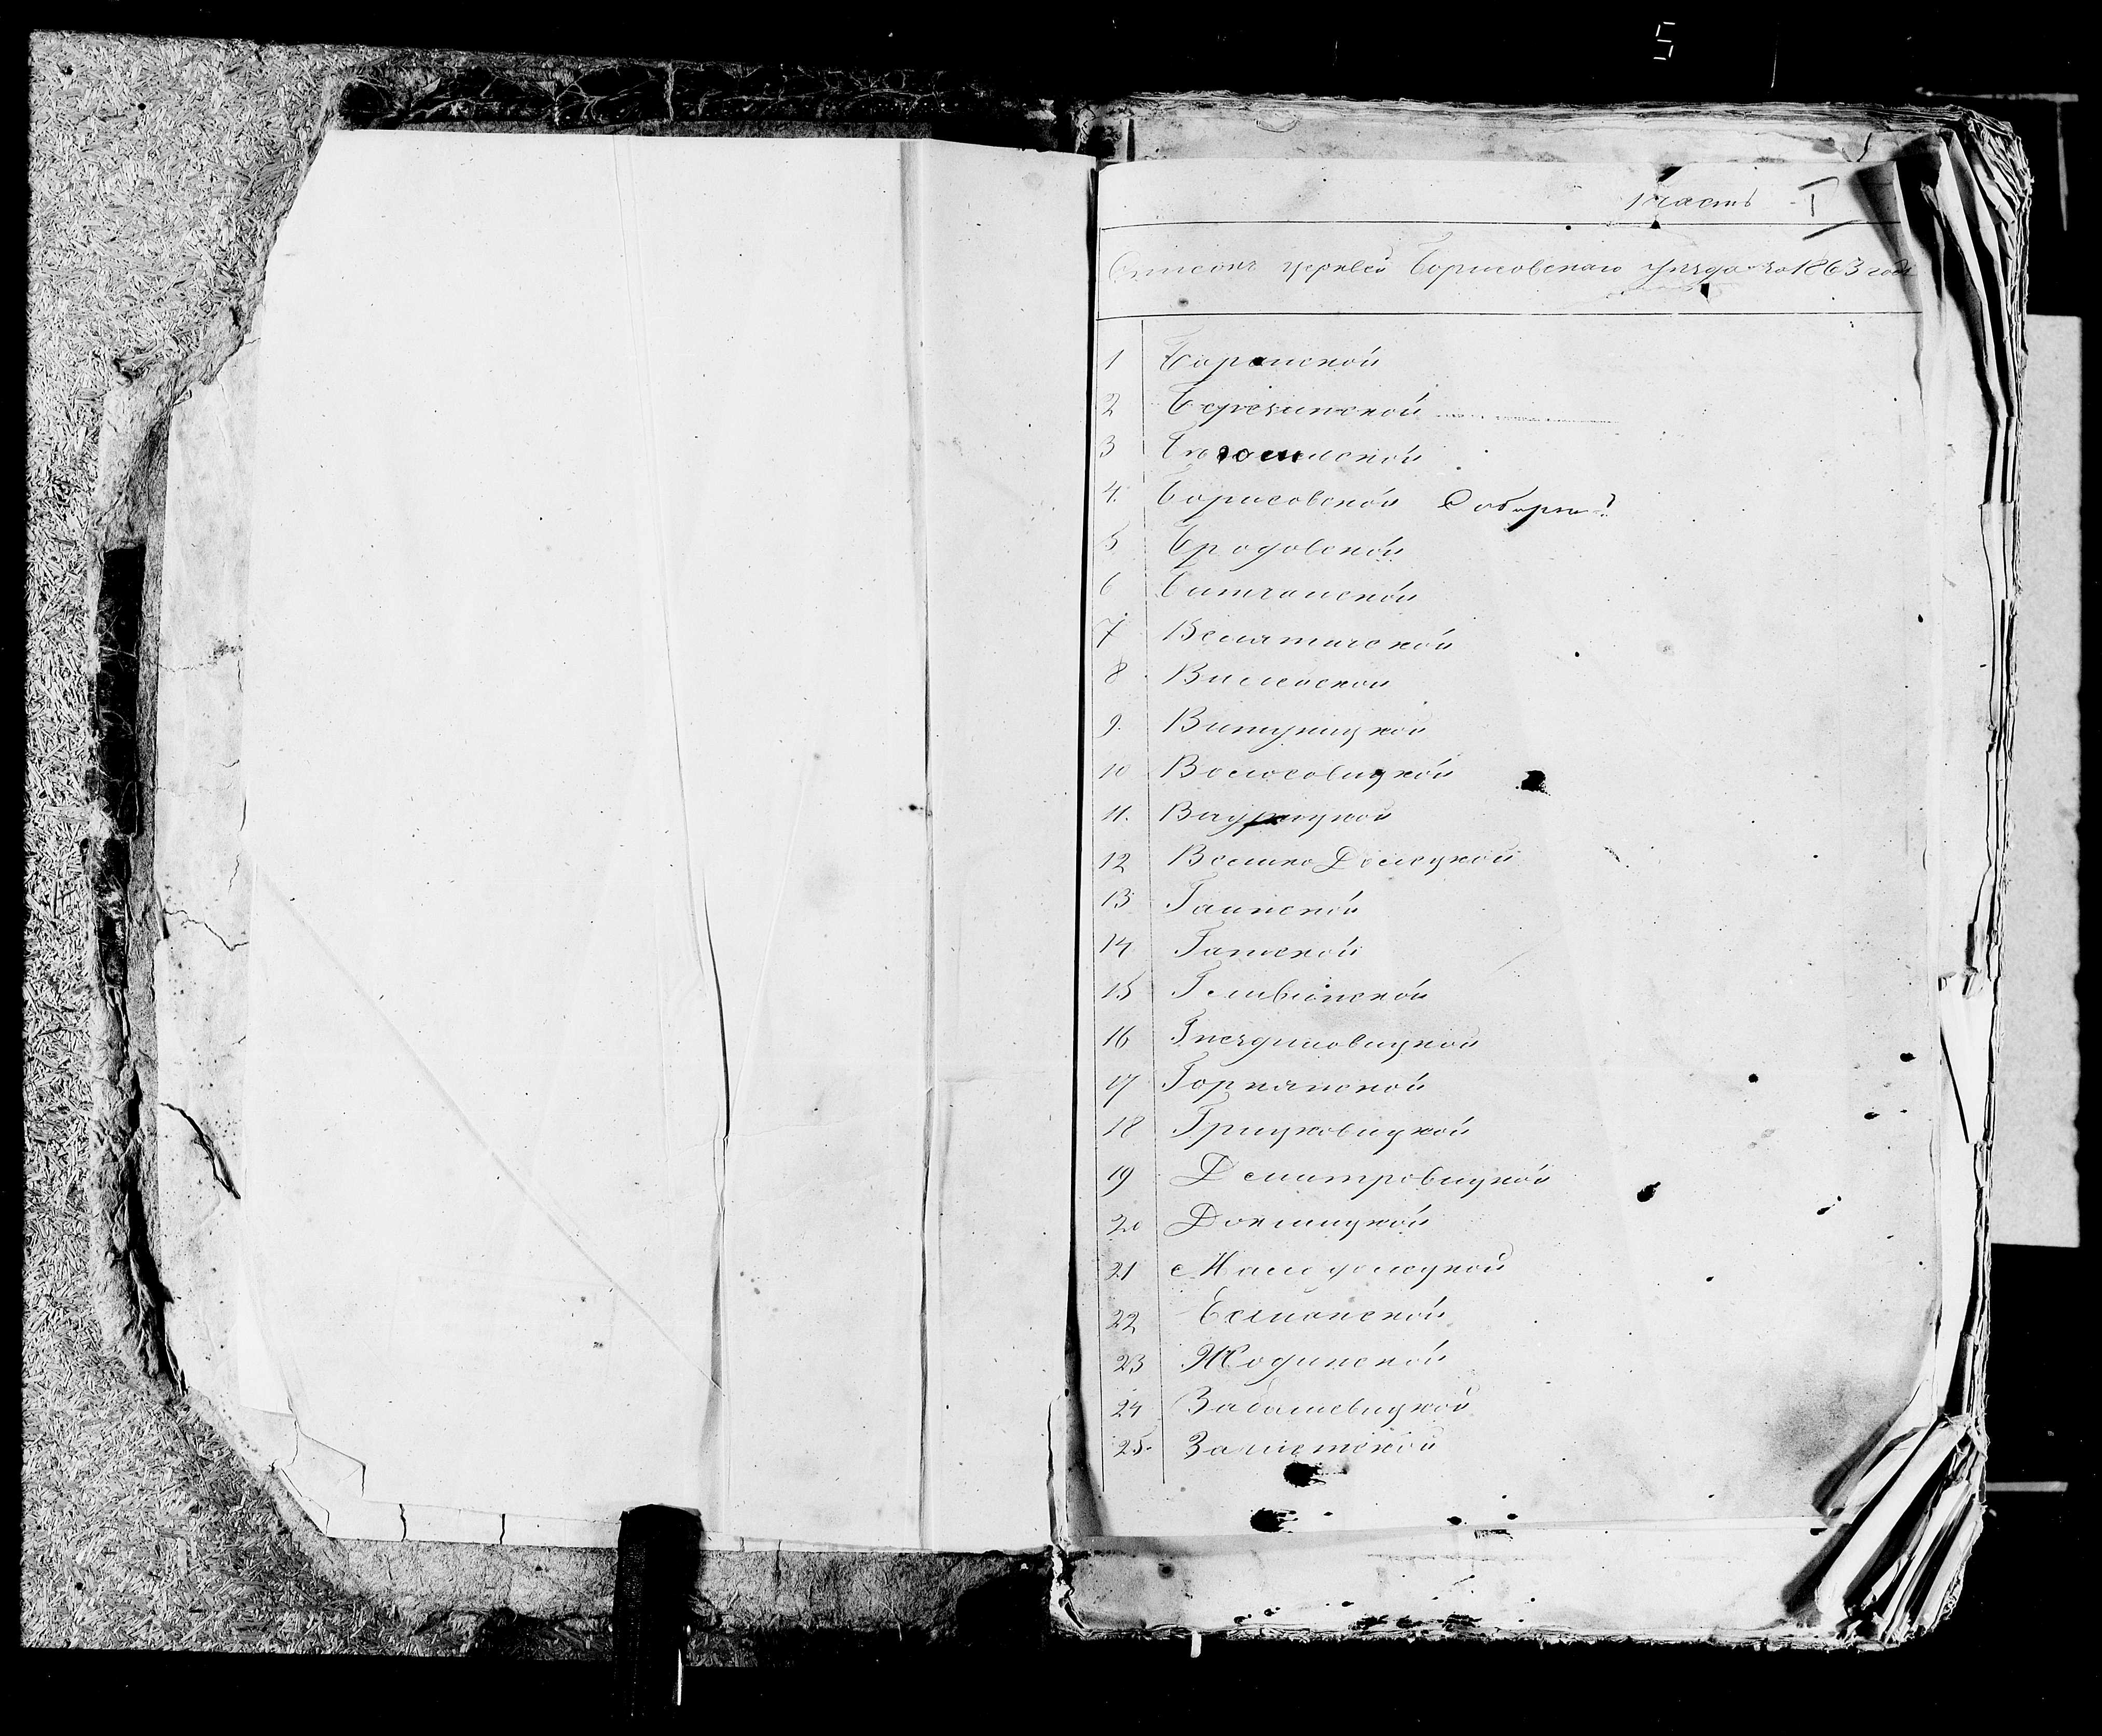 5
1 часть I
Списокъ церквей Борисовскаго уѣзда за 1863 годъ
1 Баранской
2 Березинской
3 Бѣгомльской
4. Борисовской Соборной
5 Бродовской
6 Битчанской
7 Велятичской
8 Вилейской
9. Витуницкой
10 Волосовицкой
11.
12 Велико Долецкой
13 Гаинской
14 Гатской
15 Гливинской
16 Гнездиловицкой
17 Горнянской
18 Грицковицкой
19 Демитровицкой
20 Докшицкой
21 Мало долецкой
22 Есмонской
23 Жодинской
24 Забашевицкой
25.